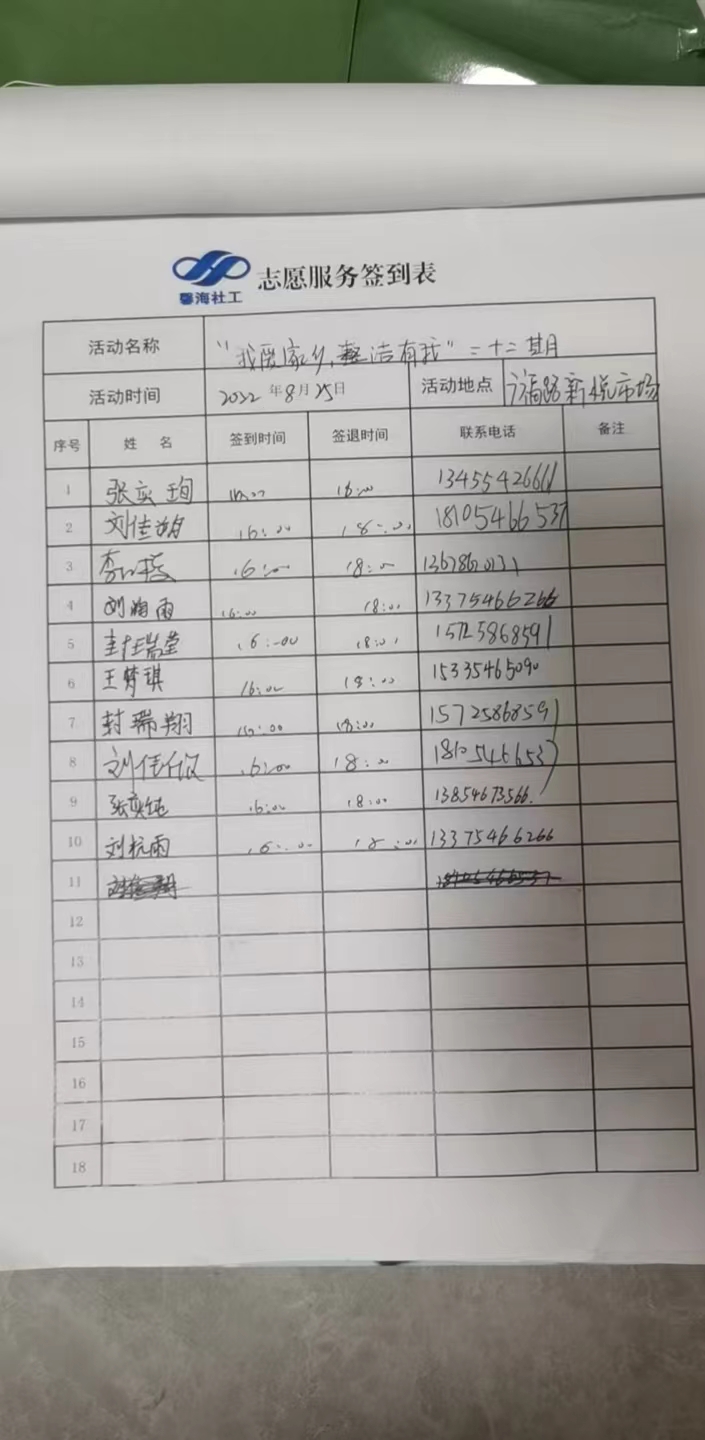 馨海社工
志愿服务签到表
活动名称 "我爱家乡,整洁有我"二十二期
活动时间 2022年8月25日 活动地点 路新悦市场
序号 姓名 签到时间 签退时间 联系电话 备注
1 张奕珣 18:00 13455426661
2 刘佳 16:00 18:00 18105466537
3 李 16:00 18:00
4 刘梅雨 16:00 18:00 13375466266
5 16:00 18:01 15725868591
6 王梦琪 16:00 18:00 15335465090
7 封瑞翔 16:00 18:00 15725868591
8 刘佳仪 16:00 18:00 18105466537
9 张奕纯 16:00 18:00 13854673566
10 刘杭雨 16:00 18:00 13375466266
11
12
13
14
15
16
17
18